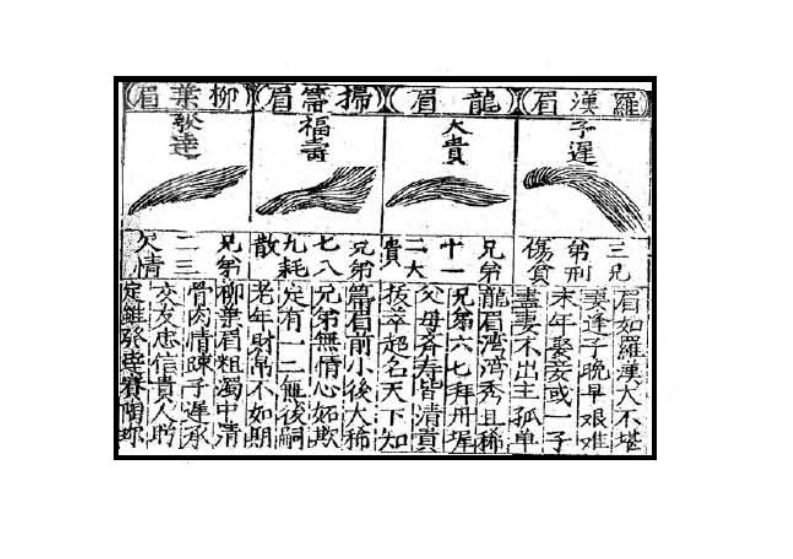 羅漢眉
子遲
三兄
弟刑
傷貧
眉如羅漢大不堪
妻逢子晚早艱难
末年娶妾或一子
盡妻不出主孤单
龍眉
大貴
兄弟
十一
二大
貴
龍眉湾湾秀且稀
兄弟六七拜丹墀
父母齐寿皆清貴
拔萃起名天下知
掃箒眉
福壽
兄弟
七八
九耗
散
箒眉前小後大稀
兄弟無情心妬欺
定有一二無後嗣
老年財帛不如期
柳葉眉
發達
兄弟
二三
欠情
柳葉眉粗濁中清
骨肉情踈子遲承
交友忠信貴人盻
定雖發達賽陶